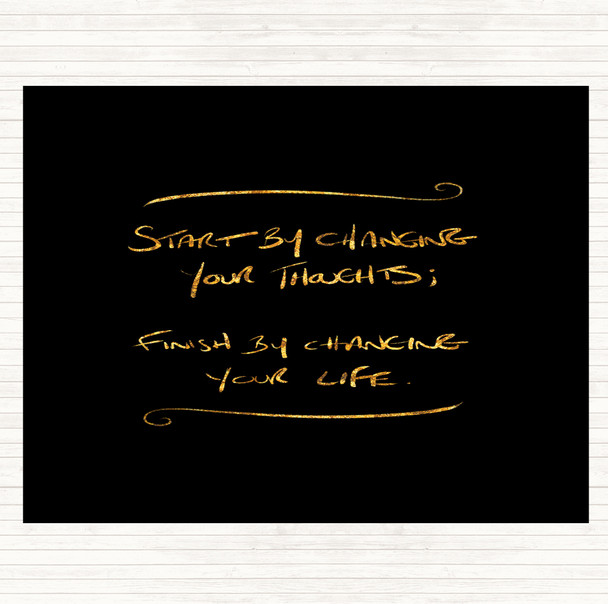 START BY CHANGING
YOUR THOUGHTS;
FINISH BY CHANGING
YOUR LIFE.